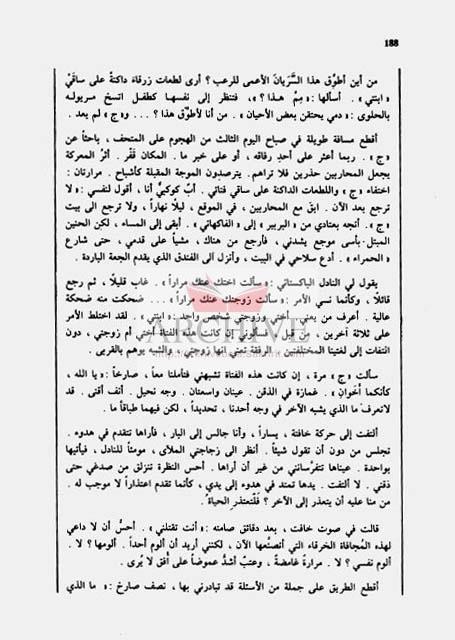 188
من أين أطوّق هذا السَّرَيانَ الأعمى للرعب؟ أرى لطعات زرقاء داكنةً على ساقَيْ
« ابنتي » . أسألها : « مِمَّ هذا؟ » ، فتنظر إلى نفسها كطفل اتسخ مريوله
بالحلوى : « دمي يحتقن بعض الأحيان » . من أنا لأطوِّق هذا؟ ... و« ج » لم يعد .
أقطع مسافة طويلة في صباح اليوم الثالث من الهجوم على المتحف ، باحثاً عن
« ج » . ربما أعثر على أحد رفاقه ، أو على خبر ما . المكان قَفْر . أثرُ المعركة
يجعل المحاربين حذرين فلا تراهم . يترصدون الموجة المقبلة كأشباح . مرارتان :
اختفاء « ج » واللطعات الداكنة على ساقي فتاتي . أبٌ كوكبيٌّ أنا ، أقول لنفسي : « لا
ترجع بعد الآن . ابقَ مع المحاربين ، في الموقع ، ليلاً نهاراً ، ولا ترجع الى بيت
« ج » . أتجه بعتادي من « البربير » إلى « الفاكهاني » . أبقى إلى المساء ، لكن الحنين
المبتل بأسى موجع يشدني ، فأرجع من هناك ، مشياً على قدمي ، حتى شارع
« الحمراء » . أدع سلاحي في البيت ، وأنزل الى الفندق الذي يقدم الجعة الباردة .
يقول لي النادل الباكستاني : « سألت اختك عنك مراراً » . غاب قليلاً ، ثم رجع
قائلاً ، وكأنما نسي الأمر : « سألت زوجتك عنك مراراً » ... ضحكت منه ضحكة
عالية . أعرف من يعني . أختي وزوجتي شخص واحد : « ابنتي » . لقد اختلط الأمر
على ثلاثة آخرين ، من قبل ، فسألوني إن كانت هذه الفتاة أختي أم زوجتي ، دون
التفات إلى لغتينا المختلفتين . الرفقة تعني انها زوجتي ، والشبه يوهم بالقربى .
سألت « ج » مرة ، إن كانت هذه الفتاة تشبهني فتأملنا معاً ، صارخاً : « يا الله ،
كأنكما أخَوان » . غمازة في الذقن . عينان واسعتان . وجه نحيل . أنف أقنى . قد
لا تعرف ما الذي يشبه الآخر في وجه أحدنا ، تحديداً ، لكن فيهما طباقاً ما .
ألتفت إلى حركة خافتة ، يساراً ، وأنا جالس إلى البار ، فأراها تتقدم في هدوء .
تجلس من دون أن تقول شيئاً . أنظر الى زجاجتي الملأى ، مومئاً للنادل ، فيأتيها
بواحدة . عيناها تتفرّسانني من غير أن أراها . أحس النظرة تنزلق من صدغي حتى
ذقني . لا ألتفت . يدها تمتد في هدوء إلى يدي ، كأنما تقدم اعتذاراً لا موجب له .
من منا عليه أن يتعذر إلى الآخر؟ فَلْتعتذر الحياةُ .
قالت في صوت خافت ، بعد دقائق صامته : « أنت تقتلني » . أحسُّ أن لا داعي
لهذه المُجافاة الخرقاء التي أتصنَّعها الآن ، لكنني أريد أن ألوم أحداً . ألومها؟ لا .
ألوم نفسي؟ لا . مرارةً غامضةً ، وعتبٌ أشدُّ غموضاً على أُفق لا يُرى .
أقطع الطريق على جملة من الأسئلة قد تبادرني بها ، نصف صارخ : « ما الذي
ARCHIVE